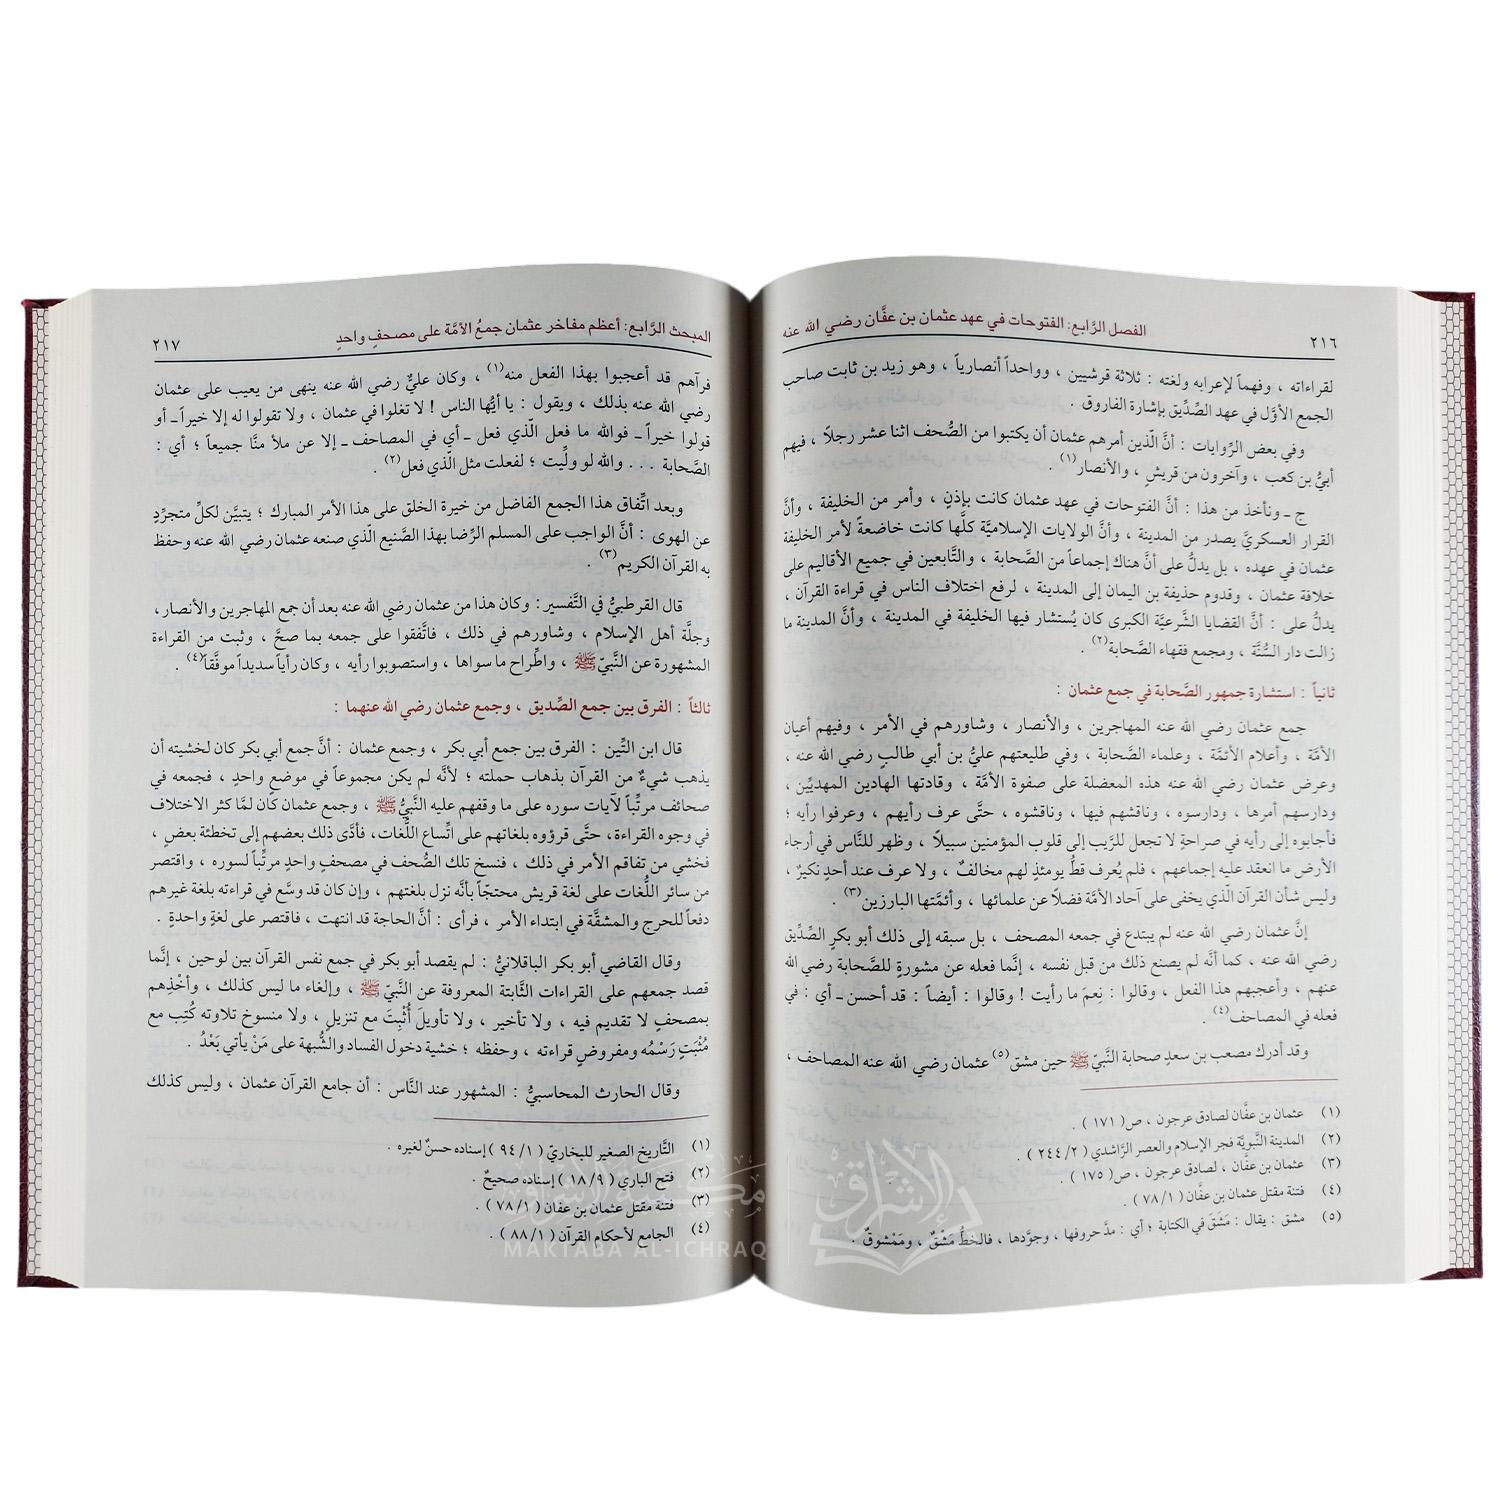 ٢١٦ الفصل الرَّابع: الفتوحات في عهد عثمان بن عفَّان رضي الله عنه
لقراءاته ، وفهماً لإعرابه ولغته : ثلاثة قرشيين ، وواحداً أنصارياً ، وهو زيد بن ثابت صاحب
الجمع الأوَّل في عهد الصِّدِّيق بإشارة الفاروق .
وفي بعض الرِّوايات : أنَّ الَّذين أمرهم عثمان أن يكتبوا من الصُّحف اثنا عشر رجلاً ، فيهم
أبيُّ بن كعب ، وآخرون من قريشٍ ، والأنصار(١) .
ج ـ ونأخذ من هذا : أنَّ الفتوحات في عهد عثمان كانت بإذنٍ ، وأمر من الخليفة ، وأنَّ
القرار العسكريَّ يصدر من المدينة ، وأنَّ الولايات الإسلاميَّة كلَّها كانت خاضعةً لأمر الخليفة
عثمان في عهده ، بل يدلُّ على أنَّ هناك إجماعاً من الصَّحابة ، والتَّابعين في جميع الأقاليم على
خلافة عثمان ، وقدوم حذيفة بن اليمان إلى المدينة ، لرفع اختلاف الناس في قراءة القرآن ،
يدلُّ على : أنَّ القضايا الشَّرعيَّة الكبرى كان يُستشار فيها الخليفة في المدينة ، وأنَّ المدينة ما
زالت دار السُّنَّة ، ومجمع فقهاء الصَّحابة(٢) .
ثانياً : استشارة جمهور الصَّحابة في جمع عثمان :
جمع عثمان رضي الله عنه المهاجرين ، والأنصار ، وشاورهم في الأمر ، وفيهم أعيان
الأمَّة ، وأعلام الأئمَّة ، وعلماء الصَّحابة ، وفي طليعتهم عليُّ بن أبي طالبٍ رضي الله عنه ،
وعرض عثمان رضي الله عنه هذه المعضلة على صفوة الأمَّة ، وقادتها الهادين المهديِّين ،
ودارسهم أمرها ، ودارسوه ، وناقشهم فيها ، وناقشوه ، حتَّى عرف رأيهم ، وعرفوا رأيه ؛
فأجابوه إلى رأيه في صراحةٍ لا تجعل للرَّيب إلى قلوب المؤمنين سبيلاً ، وظهر للنَّاس في أرجاء
الأرض ما انعقد عليه إجماعهم ، فلم يُعرف قطُّ يومئذٍ لهم مخالفٌ ، ولا عرف عند أحدٍ نكيرٌ ،
وليس شأن القرآن الَّذي يخفى على آحاد الأمَّة فضلاً عن علمائها ، وأئمَّتها البارزين(٣) .
إنَّ عثمان رضي الله عنه لم يبتدع في جمعه المصحف ، بل سبقه إلى ذلك أبو بكرٍ الصِّدِّيق
رضي الله عنه ، كما أنَّه لم يصنع ذلك من قبل نفسه ، إنَّما فعله عن مشورةٍ للصَّحابة رضي الله
عنهم ، وأعجبهم هذا الفعل ، وقالوا : نِعمَ ما رأيت ! وقالوا : أيضاً : قد أحسن ـ أي : في
فعله في المصاحف(٤) .
وقد أدرك مصعب بن سعدٍ صحابة النَّبيّ ﷺ حين مشق(٥) عثمان رضي الله عنه المصاحف ،
(١) عثمان بن عفَّان لصادق عرجون ، ص( ١٧١ ) .
(٢) المدينة النَّبويَّة فجر الإسلام والعصر الرَّاشدي ( ٢/ ٢٤٤ ) .
(٣) عثمان بن عفَّان ، لصادق عرجون ، ص( ١٧٥ ) .
(٤) فتنة مقتل عثمان بن عفَّان ( ١/ ٧٨ ) .
(٥) مشق : يقال : مَشَقَ في الكتابة ؛ أي : مدَّ حروفها ، وجوَّدها ، فالخطُّ مَشْقٌ ، ومَمْشوقٌ .
المبحث الرَّابع: أعظم مفاخر عثمان جمعُ الأمَّة على مصحفٍ واحدٍ ٢١٧
فرآهم قد أعجبوا بهذا الفعل منه(١) ، وكان عليٌّ رضي الله عنه ينهى من يعيب على عثمان
رضي الله عنه بذلك ، ويقول : يا أيُّها الناس ! لا تغلوا في عثمان ، ولا تقولوا له إلا خيراً ـ أو
قولوا خيراً ـ فوالله ما فعل الَّذي فعل ـ أي في المصاحف ـ إلا عن ملأ منَّا جميعاً ؛ أي :
الصَّحابة . . . والله لو ولِّيت ؛ لفعلت مثل الَّذي فعل(٢) .
وبعد اتِّفاق هذا الجمع الفاضل من خيرة الخلق على هذا الأمر المبارك ؛ يتبيَّن لكلِّ متجرِّدٍ
عن الهوى : أنَّ الواجب على المسلم الرِّضا بهذا الصَّنيع الَّذي صنعه عثمان رضي الله عنه وحفظ
به القرآن الكريم(٣) .
قال القرطبيُّ في التَّفسير : وكان هذا من عثمان رضي الله عنه بعد أن جمع المهاجرين والأنصار ،
وجلَّة أهل الإسلام ، وشاورهم في ذلك ، فاتَّفقوا على جمعه بما صحَّ ، وثبت من القراءة
المشهورة عن النَّبيّ ﷺ ، واطِّراح ما سواها ، واستصوبوا رأيه ، وكان رأياً سديداً موفَّقاً(٤) .
ثالثاً : الفرق بين جمع الصِّديق ، وجمع عثمان رضي الله عنهما :
قال ابن التِّين : الفرق بين جمع أبي بكر ، وجمع عثمان : أنَّ جمع أبي بكر كان لخشيته أن
يذهب شيءٌ من القرآن بذهاب حملته ؛ لأنَّه لم يكن مجموعاً في موضعٍ واحدٍ ، فجمعه في
صحائف مرتَّباً لآيات سوره على ما وقفهم عليه النَّبيُّ ﷺ ، وجمع عثمان كان لمَّا كثر الاختلاف
في وجوه القراءة، حتَّى قرؤوه بلغاتهم على اتِّساع اللُّغات، فأدَّى ذلك بعضهم إلى تخطئة بعضٍ ،
فخشي من تفاقم الأمر في ذلك ، فنسخ تلك الصُّحف في مصحفٍ واحدٍ مرتَّباً لسوره ، واقتصر
من سائر اللُّغات على لغة قريش محتجّاً بأنَّه نزل بلغتهم ، وإن كان قد وسَّع في قراءته بلغة غيرهم
دفعاً للحرج والمشقَّة في ابتداء الأمر ، فرأى : أنَّ الحاجة قد انتهت ، فاقتصر على لغةٍ واحدةٍ .
وقال القاضي أبو بكر الباقلانيُّ : لم يقصد أبو بكر في جمع نفس القرآن بين لوحين ، إنَّما
قصد جمعهم على القراءات الثَّابتة المعروفة عن النَّبيّ ﷺ ، وإلغاء ما ليس كذلك ، وأخْذِهم
بمصحفٍ لا تقديم فيه ، ولا تأخير ، ولا تأويلَ أُثْبِتَ مع تنزيلٍ ، ولا منسوخ تلاوته كُتِب مع
مُثْبَتٍ رَسْمُه ومفروضٍ قراءته ، وحفظه ؛ خشية دخول الفساد والشُّبهة على مَنْ يأتي بَعْدُ .
وقال الحارث المحاسبيُّ : المشهور عند النَّاس : أن جامع القرآن عثمان ، وليس كذلك
(١) التَّاريخ الصغير للبخاريّ ( ١/ ٩٤ ) إسناده حسنٌ لغيره .
(٢) فتح الباري ( ٩/ ١٨ ) إسناده صحيحٌ .
(٣) فتنة مقتل عثمان بن عفان ( ١/ ٧٨ ) .
(٤) الجامع لأحكام القرآن ( ١/ ٨٨ ) .
مكتبة الإشراق
الإشراق
MAKTABA AL-ICHRAQ